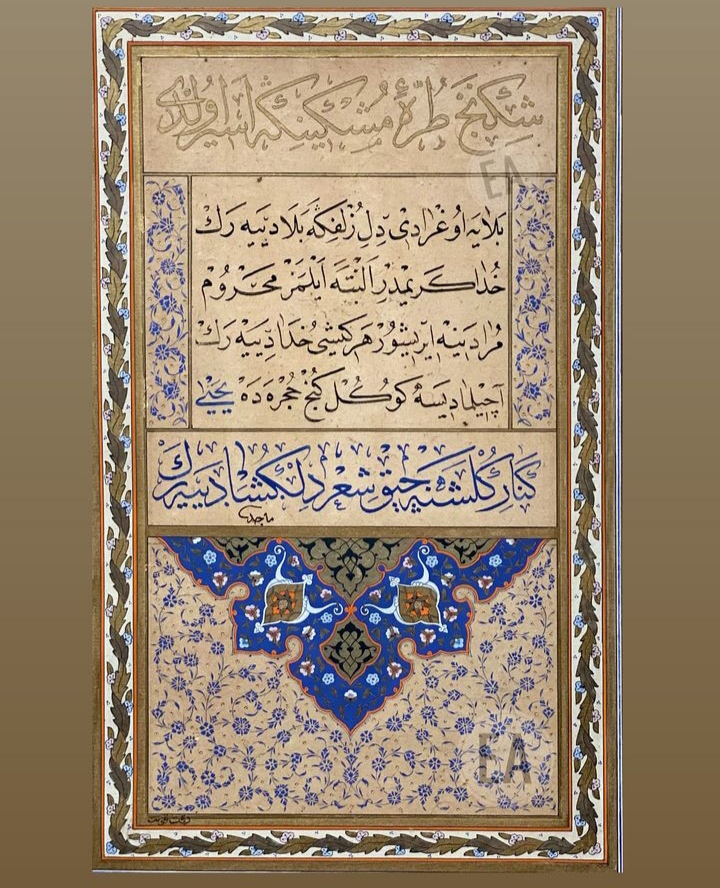 شِكَنْجِ طُرَّهٔ مُشْكِينِڭَه اَسِير اُولْدِى
بَلايَه اُوغْرَادِى دِل زُلْفِڭَه بَلا دِيَيه رَكْ
خُدَا كَرِيمْدِر اَلْبَتَّه اَيْلَمَزْ مَحْرُومْ
مُرَادِينَه اِيرِيشُورْ هَر كِيشِى خُدَا دِيَيه رَكْ
آچِيلْمَادِيسَه كُوڭُل كُنْجِ حُجْرَه دَه يَحْيَى
كَنَارِ گُلْشَنَه چِيق شِعْرِ دِلْگُشَا دِيَيه رَكْ
ماجد
EA
EA